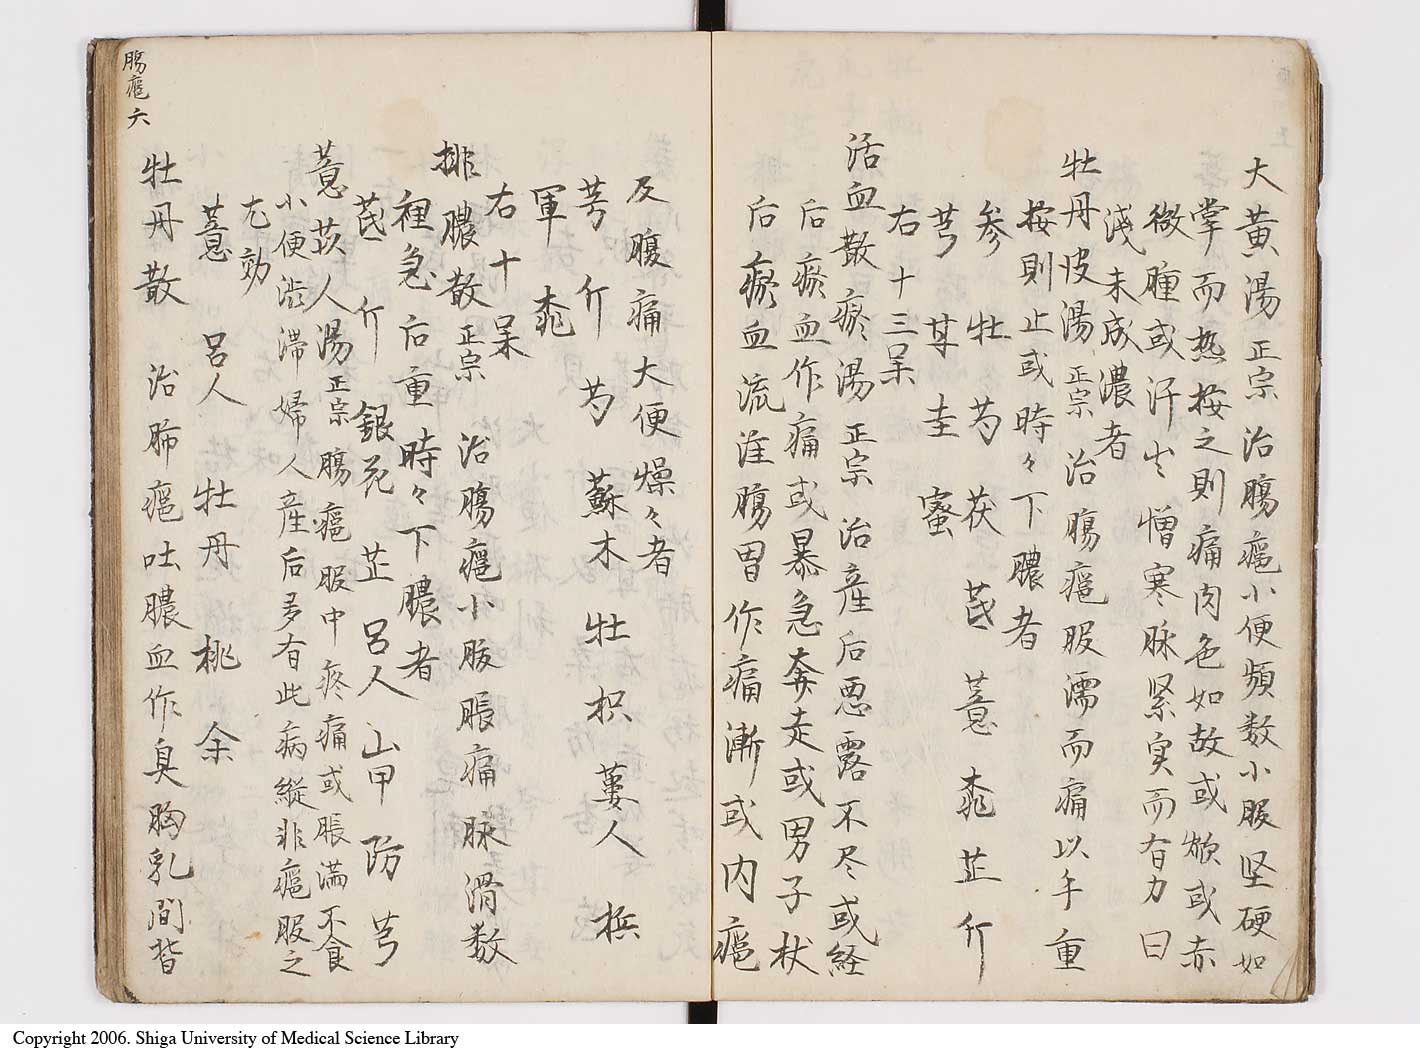 大黄湯 正宗 治腸癰小便頻数小腹堅硬如
掌而热按之則痛肉色如故或焮或赤
微腫或汗出憎寒脉緊実而有力曰
浅未成濃者
牡丹皮湯 正宗 治腸癰腹濡而痛以手重
按則止或時々下膿者
参 牡 芍 茯 芪 薏 桃 芷 介
芎 甘 圭 蜜
右十三呆
活血散瘀湯 正宗 治産后悪露不尽或経
后瘀血作痛或暴急奔走或男子杖
后瘀血流注腸胃作痛漸或内癰
及腹痛大便燥々者
芎 介 芍 蘇木 牡 枳 蔞人 梹
軍 桃
右十呆
排膿散 正宗 治腸癰小腹脹痛脉滑数
裡急后重時々下膿者
芪 介 銀花 芷 呂人 山甲 防 芎
薏苡人湯 正宗 腸癰腹中疼痛或脹満不食
小便渋滞婦人産后多有此病縦非癰服之
尤効
薏 呂人 牡丹 桃 余
牡丹散 治肺癰吐膿血作臭胸乳間皆
腸癰 六